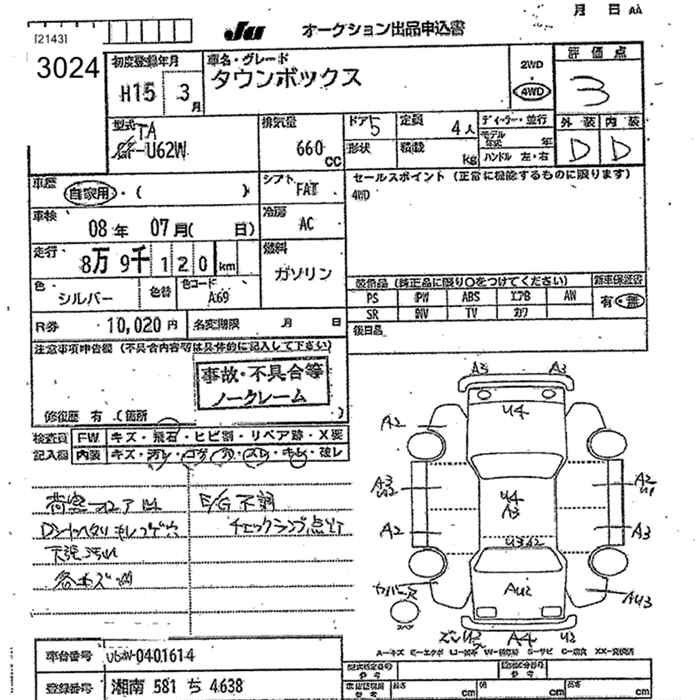 月 日 AA
[2143]
JU オークション出品申込書
3024
初度登録年月
H15 3月
車名・グレード
タウンボックス
2WD
4WD
評価点
3
型式
TA
U62W
排気量
660 cc
ドア 5
定員 4人
形状
積載 kg
ディーラー・並行
モデル年式 年
ハンドル 左・右
外装 内装
D D
車歴
自家用・( )
シフト
FAT
セールスポイント (正常に機能するものに限ります)
4WD
車検
08年 07月( 日)
冷房
AC
走行
8万 9千 1 2 0 km
燃料
ガソリン
色
シルバー
色替
色コード
A69
装備品 (純正品に限り○をつけてください)
新車保証書
PS PW ABS エアB AW
有・無
SR TV カワ
後日品
R券 10,020円
名変期限 月 日
注意事項申告欄 (不具合内容等は具体的に記入して下さい)
事故・不具合等
ノークレーム
修復歴 有 (箇所 )
検査員
記入欄
FW キズ・飛石・ヒビ割・リペア跡・X要
内装 キズ・汚レ・コゲ・穴・スレ・キレ・破レ
E/G 不調
チェックランプ点灯
天張汚れ
A3 A3
U4
A2
A3
U2
A2
U4
A3
A2
U1
A3
U3 A2
AU2
カバーズ
AU3
スペア
U2 A4 U2
A-キズ E-エクボ U-凹み W-補修跡 S-サビ C-腐食 XX-交換済
車台番号 U62W-0401614
登録番号 湘南 581 ち 4638
cm cm cm